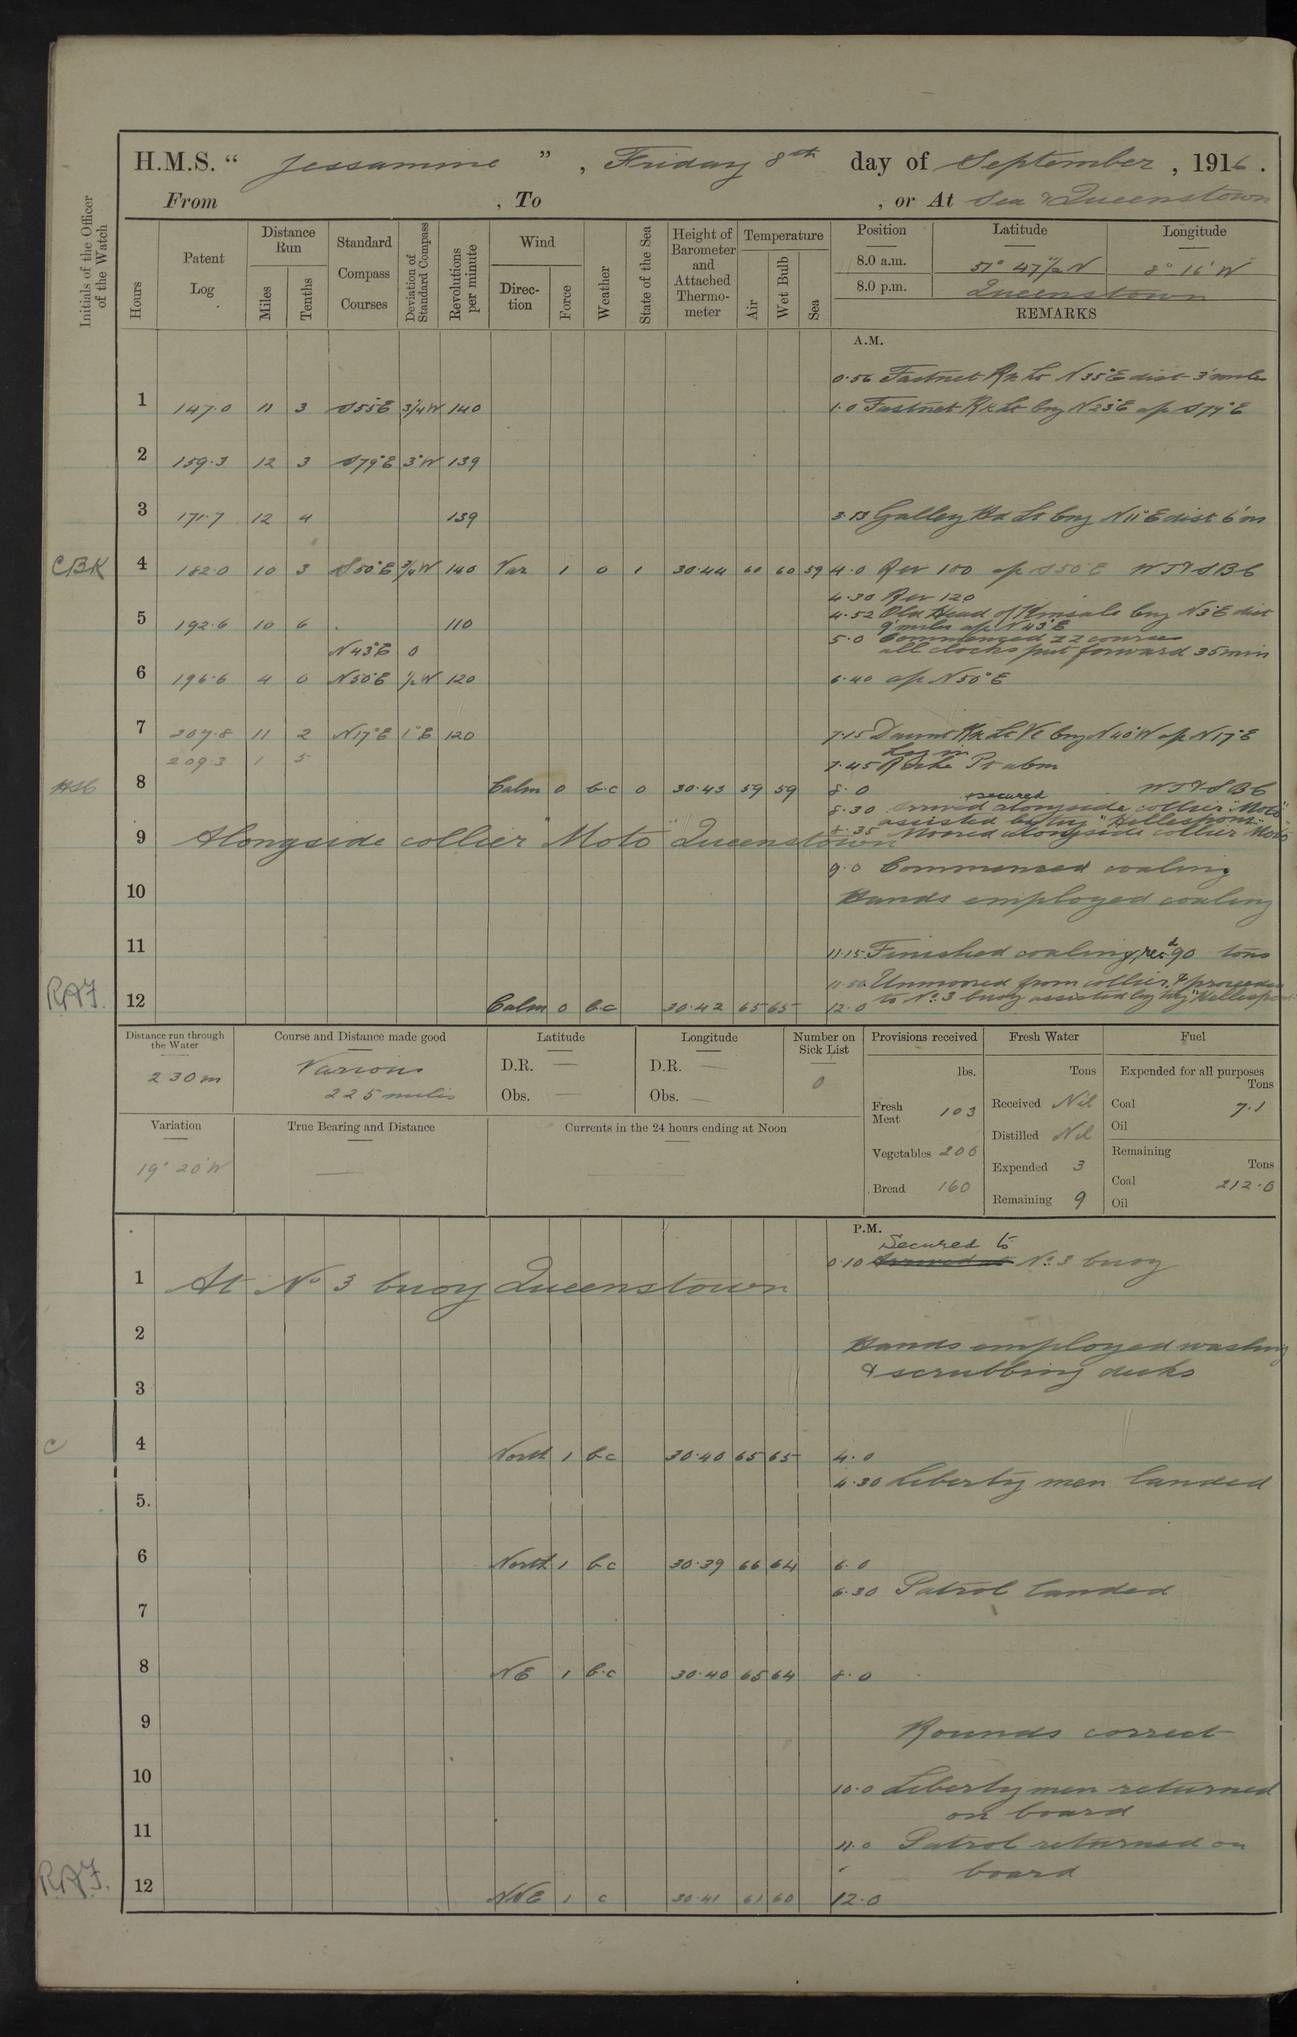 H.M.S. “ Jessamine ” , Friday 8th day of September , 1916 .
From , To , or At Sea & Queenstown
Initials of the Officer of the Watch
Hours
Patent Log
Distance Run
Miles
Tenths
Standard Compass Courses
Deviation of Standard Compass
Revolutions per minute
Wind
Direc-tion
Force
Weather
State of the Sea
Height of Barometer and Attached Thermo-meter
Temperature
Air
Wet Bulb
Sea
Position Latitude Longitude
8.0 a.m. 51° 47½ N 8° 16' W
8.0 p.m. Queenstown
REMARKS
A.M.
0.56 Fastnet Rk Lt N35°E dist 3 miles
1 147.0 11 3 S55°E 3/4W 140 1.0 Fastnet Rk Lt brg N23°E a/c S79°E
2 159.3 12 3 S79°E 3°W 139
3 171.7 12 4 139 3.13 Galley Hd Lt brg N11°E dist 6'm
CBK 4 182.0 10 3 S50°E 3/4W 140 Var 1 0 1 30.44 60 60 59 4.0 Rev 100 a/c S50°E WT & SBC
4.30 Rev 120
4.52 Old Head of Kinsale brg N3°E dist
5 192.6 10 6 110 9 miles a/c N43°E
5.0 Commenced zz courses
N43°E 0 all clocks put forward 35 min
6 196.6 4 0 N50°E ½W 120 6.40 a/c N50°E
7 207.8 11 2 N17°E 1°E 120 7.15 Daunt Rk Lt Vl brg N40°W a/c N17°E
Log in
209.3 1 5 7.45 Roche Pt abm
8 Calm 0 b.c 0 30.43 59 59 8.0 WT & SBC
8.30 Arrived secured alongside collier "Moto"
assisted by tug "Hellespont"
8.35 Moored alongside collier Moto
9 Alongside collier "Moto" Queenstown
9.0 Commenced coaling
10 Hands employed coaling
11 11.15 Finished coaling, recd 90 tons
11.50 Unmoored from collier & proceeded
to No. 3 buoy assisted by tug "Hellespont"
RAF. 12 Calm 0 bc 30.42 65 65 12.0
Distance run through the Water
230m
Course and Distance made good
Various
225 miles
Latitude
D.R. —
Obs. —
Longitude
D.R. —
Obs. —
Number on Sick List
0
Provisions received
lbs.
Fresh Meat 103
Vegetables 200
Bread 160
Fresh Water
Tons
Received Nil
Distilled Nil
Expended 3
Remaining 9
Fuel
Expended for all purposes
Tons
Coal 7.1
Oil
Remaining
Tons
Coal 212.0
Oil
Variation
19° 20' W
True Bearing and Distance
Currents in the 24 hours ending at Noon
P.M.
Secured to
0.10 Arrived at No. 3 buoy
1 At No 3 buoy Queenstown
2 Hands employed washing
& scrubbing decks
3
C 4 North 1 bc 30.40 65 65 4.0
4.30 Liberty men landed
5.
6 North 1 b.c 30.39 66 64 6.0
6.30 Patrol landed
7
8 NE 1 b.c 30.40 65 64 8.0
9 Rounds correct
10 10.0 Liberty men returned
on board
11 11.0 Patrol returned on
board
RAF. 12 NNE 1 c 30.41 61 60 12.0